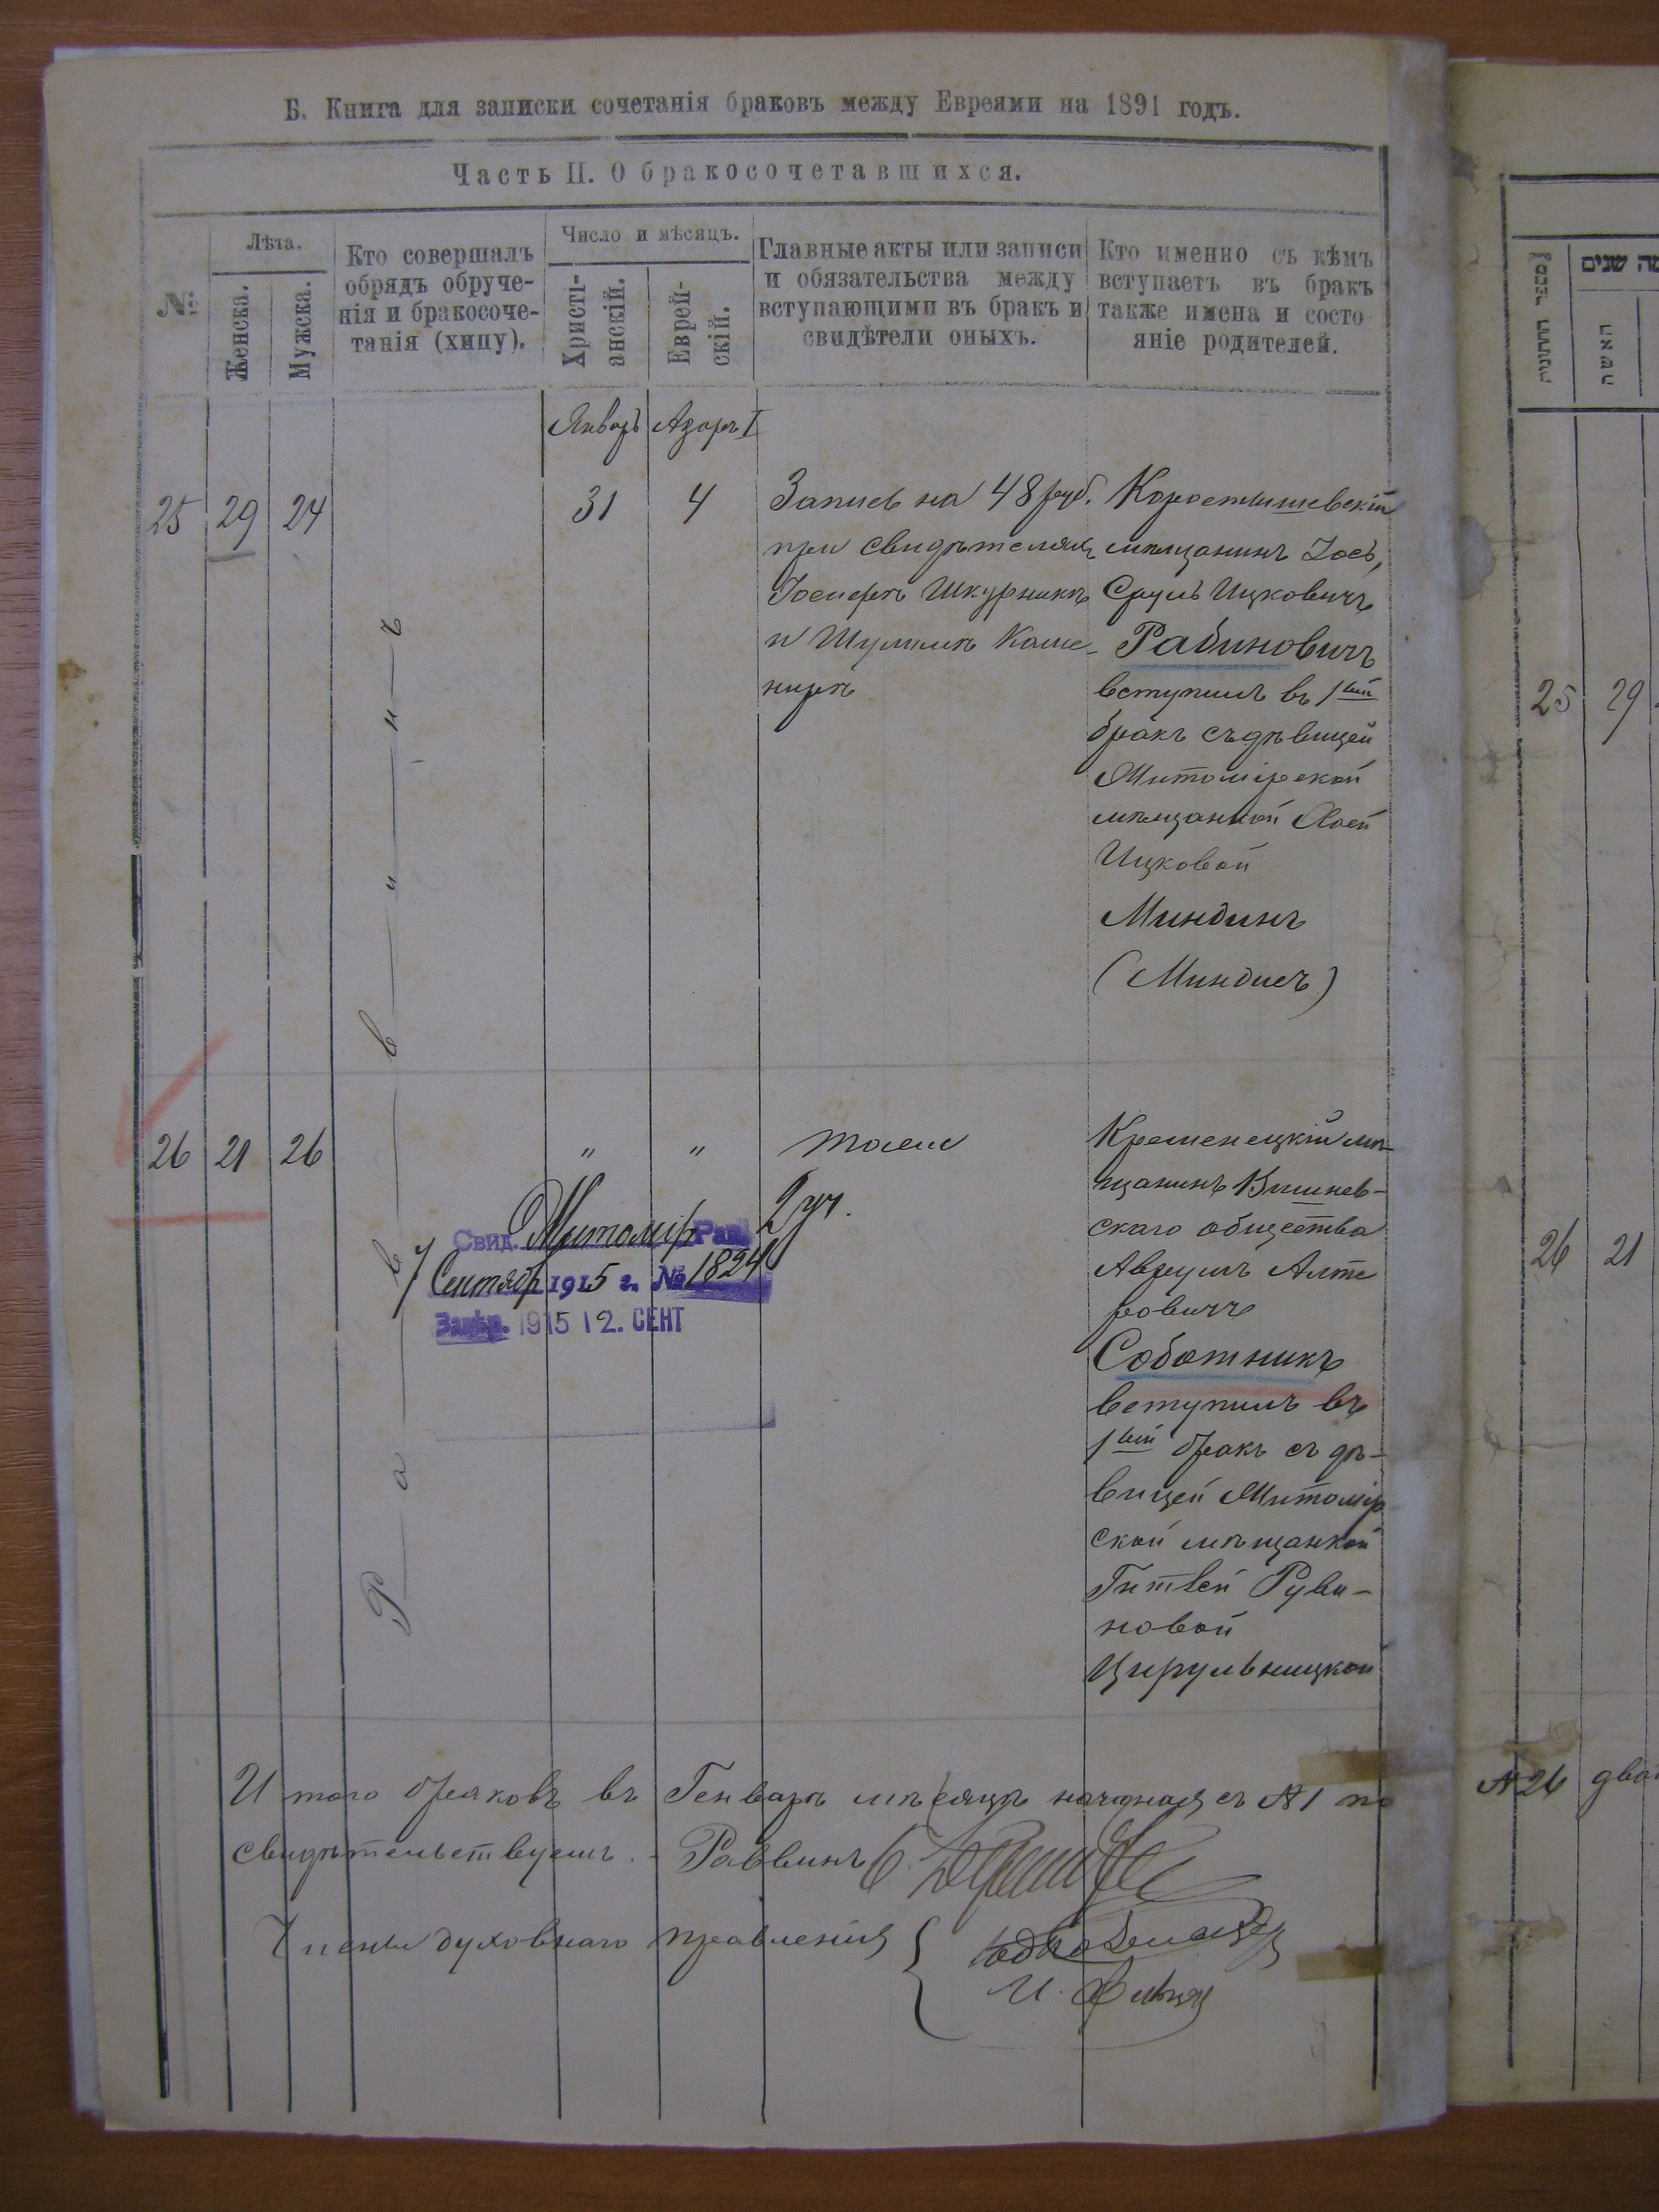 Б. Книга для записки сочетанія браковъ между Евреями на 1891 годъ.
Часть II. О бракосочетавшихся.
№
Лѣта.
Женска.
Мужска.
Кто совершалъ
обрядъ обруче-
нія и бракосоче-
танія (хипу).
Число и мѣсяцъ.
Христі-
анскій.
Еврей-
скій.
Главные акты или записи
и обязательства между
вступающими въ бракъ и
свидѣтели оныхъ.
Кто именно съ кѣмъ
вступаетъ въ бракъ
также имена и состо
яніе родителей.
Январь Адаръ I
25 29 24
Р а в в и н ъ
31 4
Запись на 48 руб.
при свидѣтеляхъ
Іосифѣ Шкурникѣ
и Шулимѣ Каше-
нирѣ
Коростышевскій
мѣщанинъ Іось,
Сруль Ицковичъ
Рабиновичъ
вступилъ въ 1ый
бракъ съ дѣвицей
Житомірской
мѣщанкой Хаей
Ицковой
Миндинъ
(Миндисъ)
26 21 26
" " тоже
2 уч.
Свид. Житомір Рав.
7 Сентябр 1915 г. № 1824
Завѣр. 1915 12. СЕНТ
Кременецкій мѣ-
щанинъ Вишнев-
скаго общества
Аврумъ Алте
ровичъ
Соботникъ
вступилъ въ
1ый бракъ съ дѣ-
вицей Житомір
ской мѣщанкой
Гитлей Руви-
новой
Цирульницкой
Итого браковъ въ Генварѣ мѣсяцѣ начиная съ № 1 по
свидѣтельствуемъ. Раввинъ
Члены духовнаго правленія
מה שנים
האשה
25 29
26 21
№ 26 два